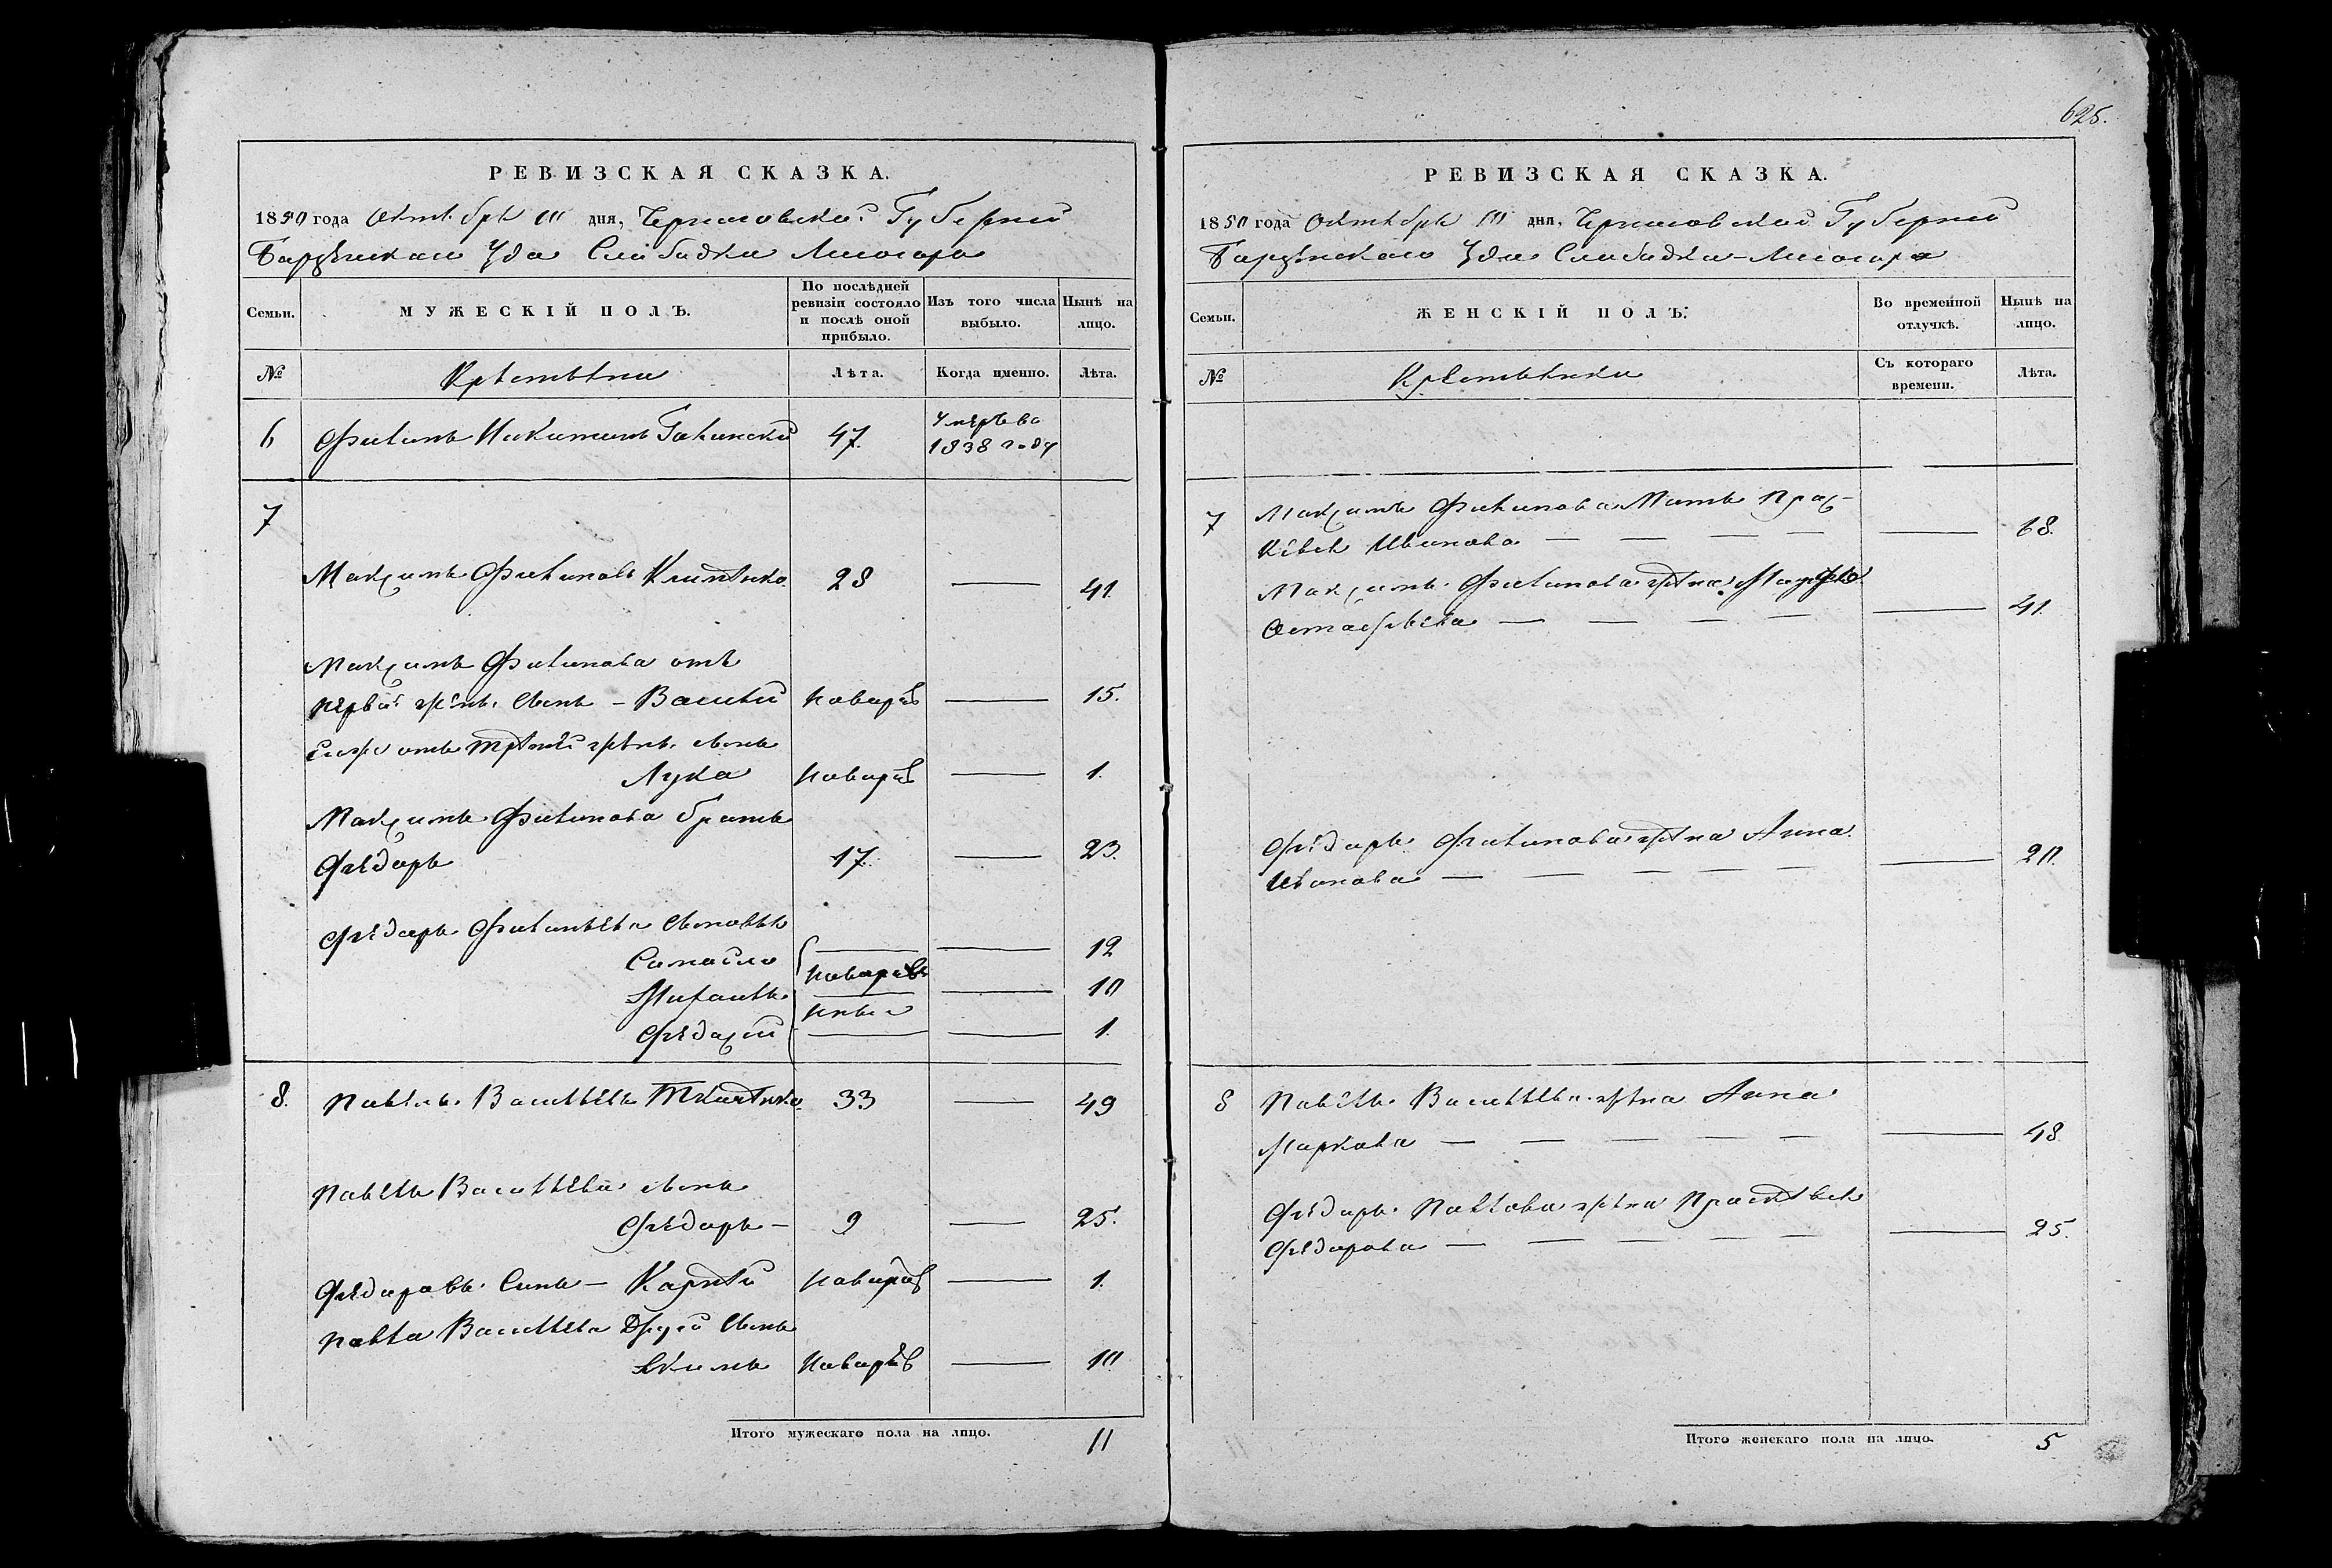 625.
РЕВИЗСКАЯ СКАЗКА.
1850 года Октебре 10 дня, Черниговской Губернии
Слабадки Лисогора
Семьи. МУЖЕСКІЙ ПОЛЪ. По послѣдней ревизіи состояло и послѣ оной прибыло. Изъ того числа выбыло. Нынѣ на лицо.
№ Лѣта. Когда именно. Лѣта.
6 Филипъ Никитинъ 47. Умеръ въ
1838 году
7
Максимъ Филиповъ 28 — 41.
Максима Филипова отъ
первой жены сынъ – Василий новорож — 15.
Его же отъ третей жены сынъ
Лука новорож — 1.
Максима Филипова братъ
Федоръ 17. — 23.
Федора Филипьева сыновья
Самойло — — 12
новорож
— — 10
Федосий — — 1.
8. Павелъ Васильевъ Ткаченко 33 — 49
Павела Васильева сынъ
Федоръ – 9 — 25.
Федоровъ Синъ – новорож — 1.
Павла Васильева Другой сынъ
Екимъ новорож — 10.
Итого мужескаго пола на лицо. 11
РЕВИЗСКАЯ СКАЗКА.
1850 года Октебре 10 дня, Черниговской Губернии
Слабадки–Лисогора
Семьи. ЖЕНСКІЙ ПОЛЪ. Во временной отлучкѣ. Нынѣ на лицо.
№ Съ котораго времени. Лѣта.
7 Максима Филипова Мать Прас–
Иванова — — — — — 68.
Максима Филипова жена Марфа
— — — — — 41.
Федора Филипова жена Анна
Иванова — — — — — — 20.
8 Павела Васильева жена Анна
Маркова — — — — — — 48.
Федора Павлова жена
Федорова — — — — — — 25.
Итого женскаго пола на лицо. 5